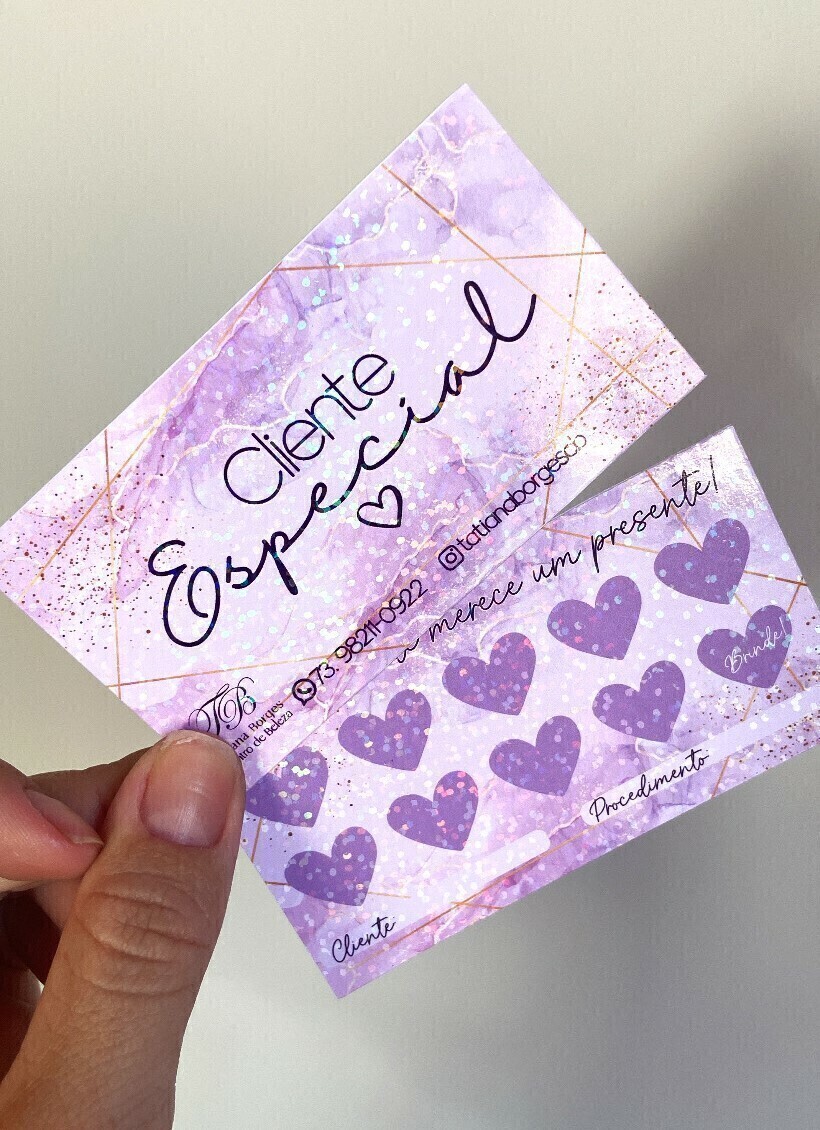 Cliente
Especial
TB
Borges
de Beleza
73. 98211-0922
tatianaborgescb
merece um presente!
Brinde!
Cliente
Procedimento